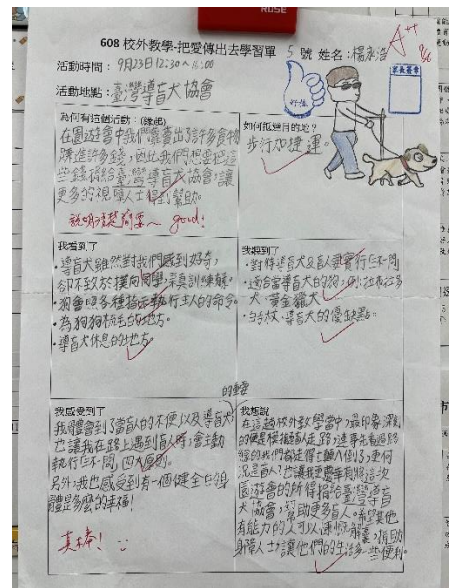 608 校外教學-把愛傳出去學習單 5 號 姓名:楊承浩
A++
活動時間: 9月23日12:30~16:00
家長簽章
活動地點:臺灣導盲犬協會
好棒
為何有這個活動:(緣起)
在園遊會中我們靠賣出了許多食物
賺進許多錢,因此我們想要把這
些錢捐給臺灣導盲犬協會,讓
更多的視障人士得到幫助。
說明清楚簡要~ good!
如何抵達目的地?
步行加捷運。
我看到了
·導盲犬雖然對我們感到好奇,
卻不致於撲向同學,真訓練有素。
·狗會照各種指示執行主人的命令。
·為狗狗梳毛的地方。
·導盲犬休息的地方。
我聽到了
·對待導盲犬及盲人要實行三不一問
·適合當導盲犬的狗,例:拉布拉多
犬、黃金獵犬
·白手杖、導盲犬的優缺點。
我感受到了
我體會到了盲人的不便以及導盲犬的重要
也讓我在路上遇到盲人時,會主動
執行三不一問,四大原則。
另外,我也感受到有一個健全的身
體是多麼的幸福!
真棒!
我想說
在這趟校外教學當中,最印象深刻
的便是模擬盲人走路,連事先看過路
線的我們都走得士難八倒了,更何
況是盲人?也讓我更慶幸有將這次
園遊會的所得捐給臺灣導盲
犬協會,幫助更多盲人。希望其他
有能力的人可以慷慨解囊,捐助
身障人士,讓他們的生活多一些便利。